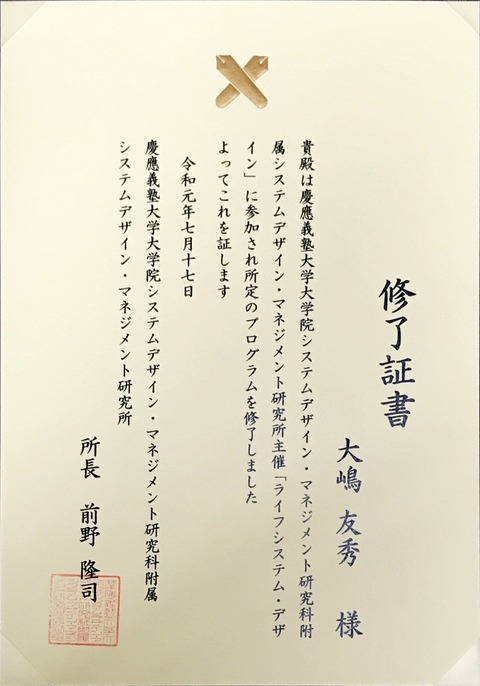 修了証書
大嶋 友秀 様
貴殿は慶應義塾大学大学院システムデザイン・マネジメント研究科附
属システムデザイン・マネジメント研究所主催「ライフシステム・デザ
イン」に参加され所定のプログラムを修了しました
よってこれを証します
令和元年七月十七日
慶應義塾大学大学院システムデザイン・マネジメント研究科附属
システムデザイン・マネジメント研究所
所長 前野 隆司